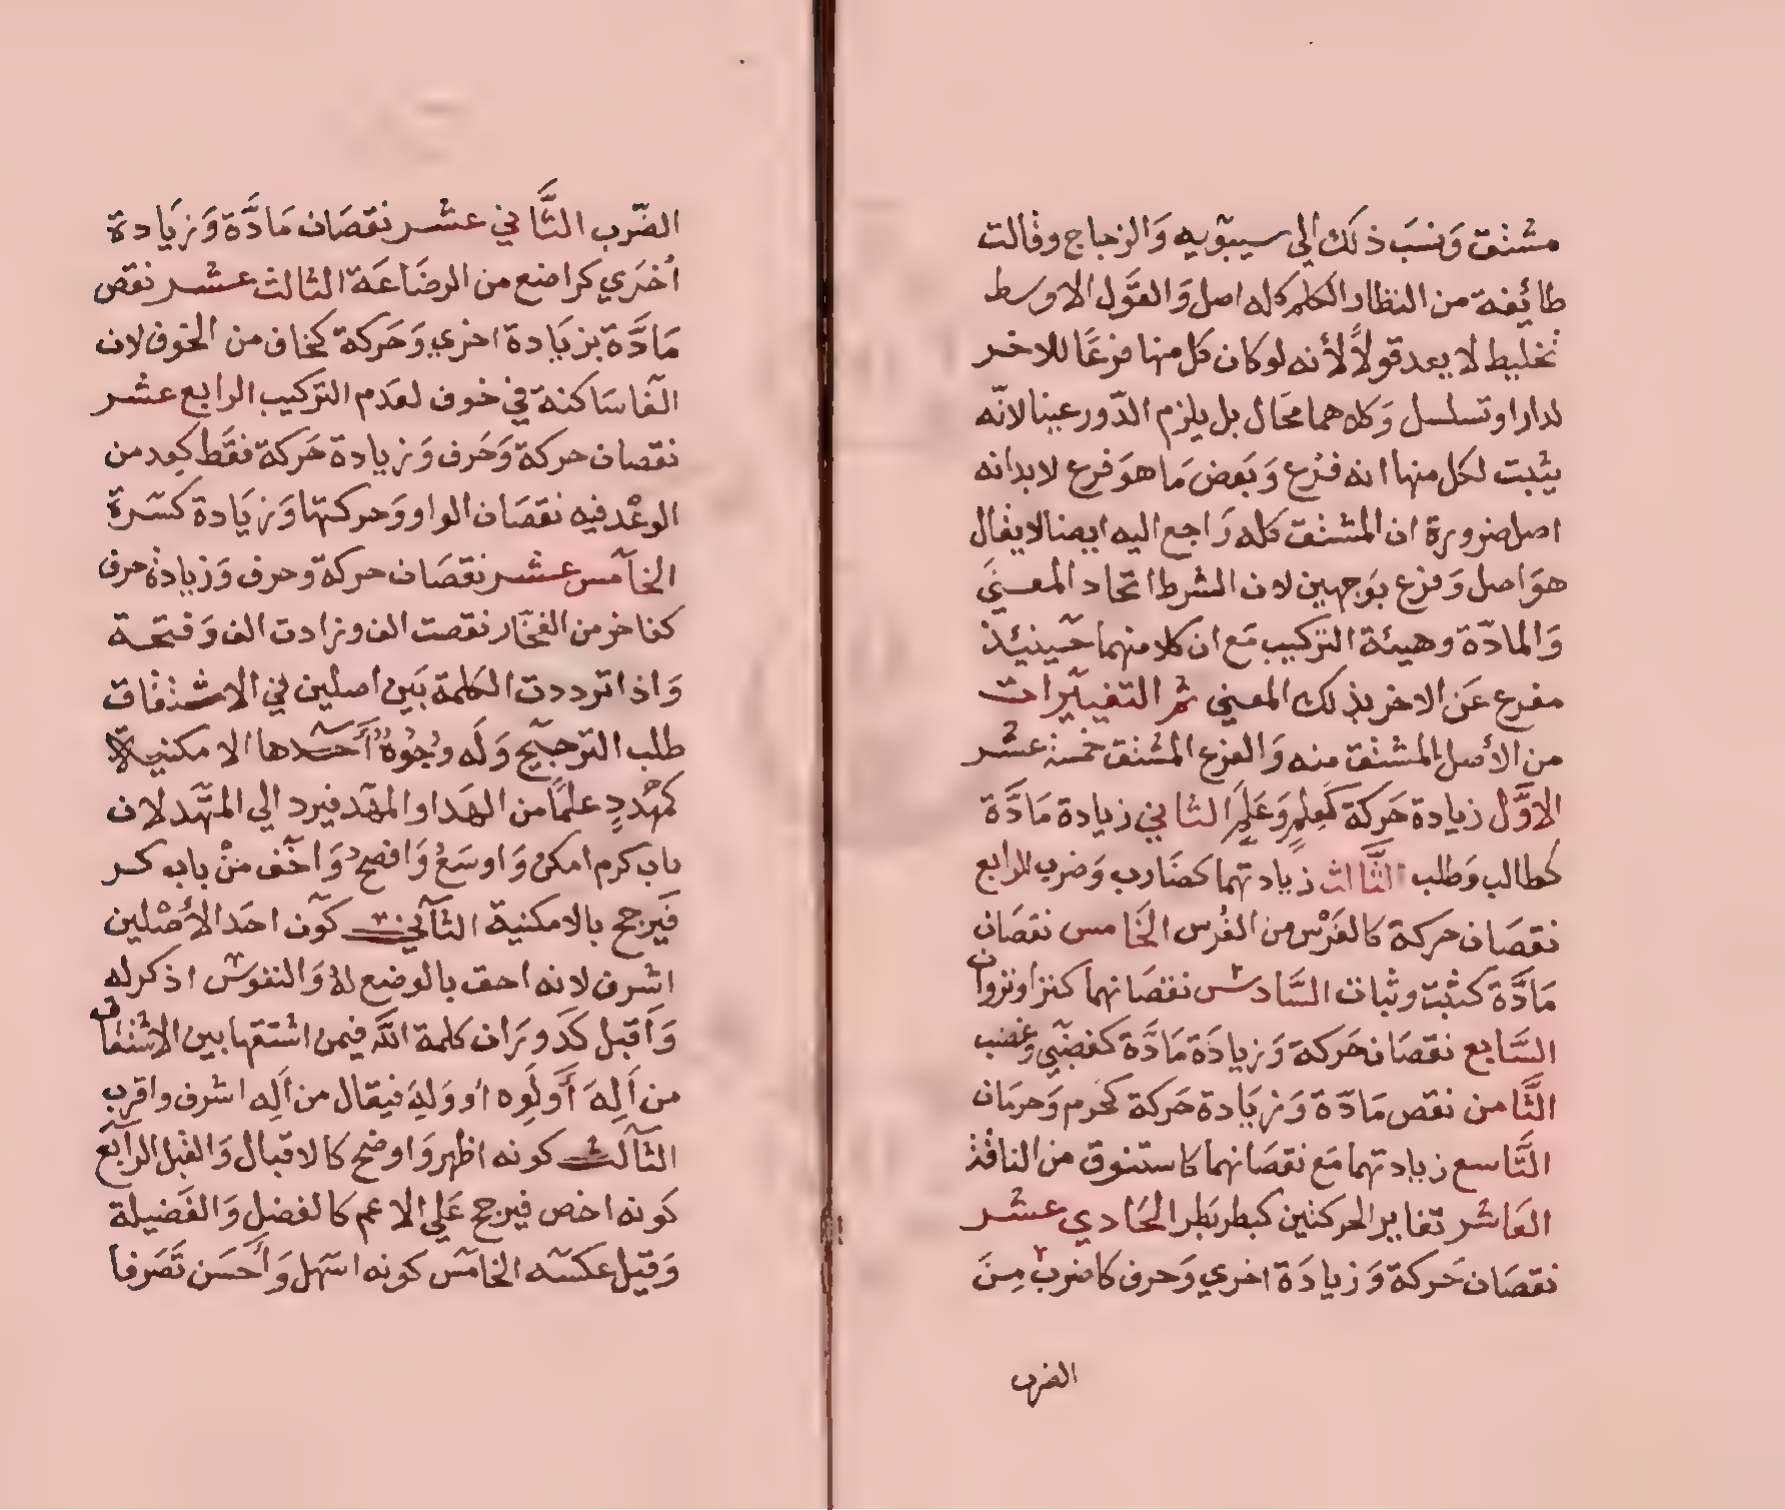 مشتق وَنسَبَ ذلك الي سيبَويه وَالزجاج وقالت
طائفة من النظار الكلم كله اصل وَالقوَل الاوسط
تخليط لا يعد قولاً لأنه لو كان كل منها فرعًا للاخر
لدار او تسلسل وَكلاهما محَال بل يلزم الدّور عينا لانّه
يثبت لكل منها انه فرْع وَبَعض مَا هوَ فرع لابد انه
اصل ضرورة ان المشتق كله رَاجع اليه ايضا لا يقال
هوَ اصل وَفرع بوَجهين لان الشرط اتحاد المعنيَ
وَالمادّة وهيئة التركيب مَع ان كلا منهما حَينيئذ
مفرع عَن الاخر بذلك المعني ثم التغييَرات
من الأصل المشتق منه وَالفرع المشتق خمسة عشر
الاوَّل زيادة حَركة كَعِلمٍ وَعَلِمَ الثاني زيادة مَادَّة
كطالب وَطلب الثَّالث زيادتهما كضَارب وَضرب الرابع
نقصَان حركة كالفَرْس من الفُرس الخَامس نقصَان
مَادَّة كثبت وثبات السَّادسْ نقصَانهما كنزا ونزوان
السَّابع نقصَان حَركة وَزيادَة مَادَّة كغضبَي وغضب
الثَّامن نقص مَادّة وَزيَادة حَركة كحُرم وَحرمَان
التَّاسع زيادتهما مَع نقصَانهما كاستنوق من الناقة
العَاشر تغاير الحركتين كبطر بَطِر الحَادي عشر
نقصَان حَركة وَزيادَة اخري وَحرف كاضرب مِنَ
الضرب
الضّرب الثَّاني عشر نقصَان مَادَّة وَزيَادة
اُخرَي كراضع من الرضَاعَة الثالث عشر نقص
مَادَّة بزيَادة اخري وَحَركة كخاف من الخوف لان
الفَا سَاكنة في خوف لعدَم التركيب الرابع عشر
نقصان حركة وَحَرف وَزيادة حَركة فقَط كعِد من
الوعْد فيه نقصَان الواو وَحركتها وَزيَادة كسَرة
الخامَس عشر نقصَان حركة وحرف وَزيادة حرف
كفاخر من الفخَار نقصت الف وزادت الف وَفتحَة
وَاذا ترددت الكلمة بَين اصلين في الاشتقاق
طلب الترجيَح وَلَه وُجُوهٌ أحَدها الامكنية
كمهْددٍ علمًا من الهَد او المهَد فيرد الي المهَد لان
باب كرم امكن وَاوسَعُ وَافصحُ وَاخَف منْ باب كر
فَيرجح بالامكنية الثاَني كوَن احَد الأصْلين
اشرف لانه احق بالوضع لهُ وَالنفوس اذكر له
وَاَقبل كدَورَان كلمة اللَّه فيمن اشتقها بين الاشتقاق
من اَلِهَ أَو لَوِه اُو وَلِهَ فيقال من اَلِه اشرف واقرب
الثاَلث كونه اظهر وَاوضح كالاقبال وَالقبل الرابَع
كونه اخص فيرجح عَلي الاعم كالفضل وَالفَضيلة
وَقيل عكسَه الخامَس كونه اسَهل وَأَحَسَن تَصَرفا